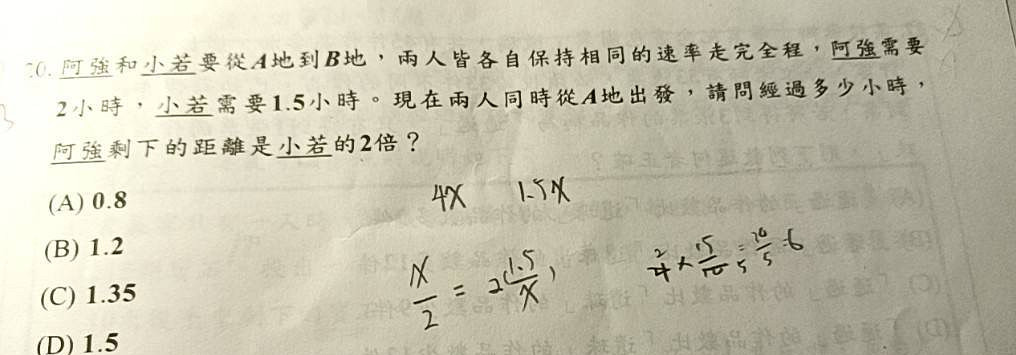 20. 阿強和小若要從A地到B地，兩人皆各自保持相同的速率走完全程，阿強需要
2小時，小若需要1.5小時。現在兩人同時從A地出發，請問經過多少小時，
阿強剩下的距離是小若的2倍？
(A) 0.8
(B) 1.2
(C) 1.35
(D) 1.5
4x 1.5x
x/2 = 2(1.5/x)